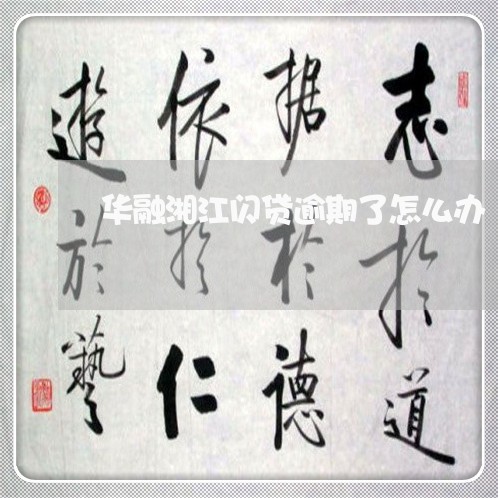 志於道
据於德
依於仁
遊於藝
华融湘江闪贷逾期了怎么办